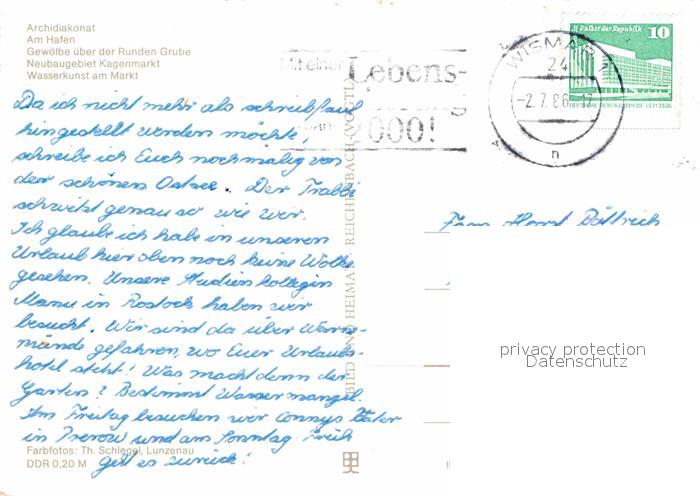 Archidiakonat
Am Hafen
Gewölbe über der Runden Grube
Neubaugebiet Kagenmarkt
Wasserkunst am Markt
Da ich nicht mehr als schreibfaul
hingestellt werden möchte,
schreibe ich Euch nochmalig von
der schönen Ostsee. Der Trabbi
schwitzt genau so wie wir.
Ich glaube ich habe in unseren
Urlaub hier oben noch keine Wolke
gesehen. Unsere Studienkollegin
Manu in Rostock haben wir
besucht. Wir sind da über Warne-
münde gefahren, wo Euer Urlaubs-
hotel steht! Was macht denn der
Garten? Bestimmt Wassermangel.
Am Freitag besuchen wir Connys Vater
in Prerow und am Sonntag Früh
geht es zurück!
Farbfotos: Th. Schlegel, Lunzenau
DDR 0,20 M
BILD UND HEIMAT REICHENBACH (VOGTL)
Mit einer Lebens-
2000!
WISMAR
24
-2.7.86-17
n
Palast der Republik
10
Fam. Horst Böttrich
privacy protection
Datenschutz